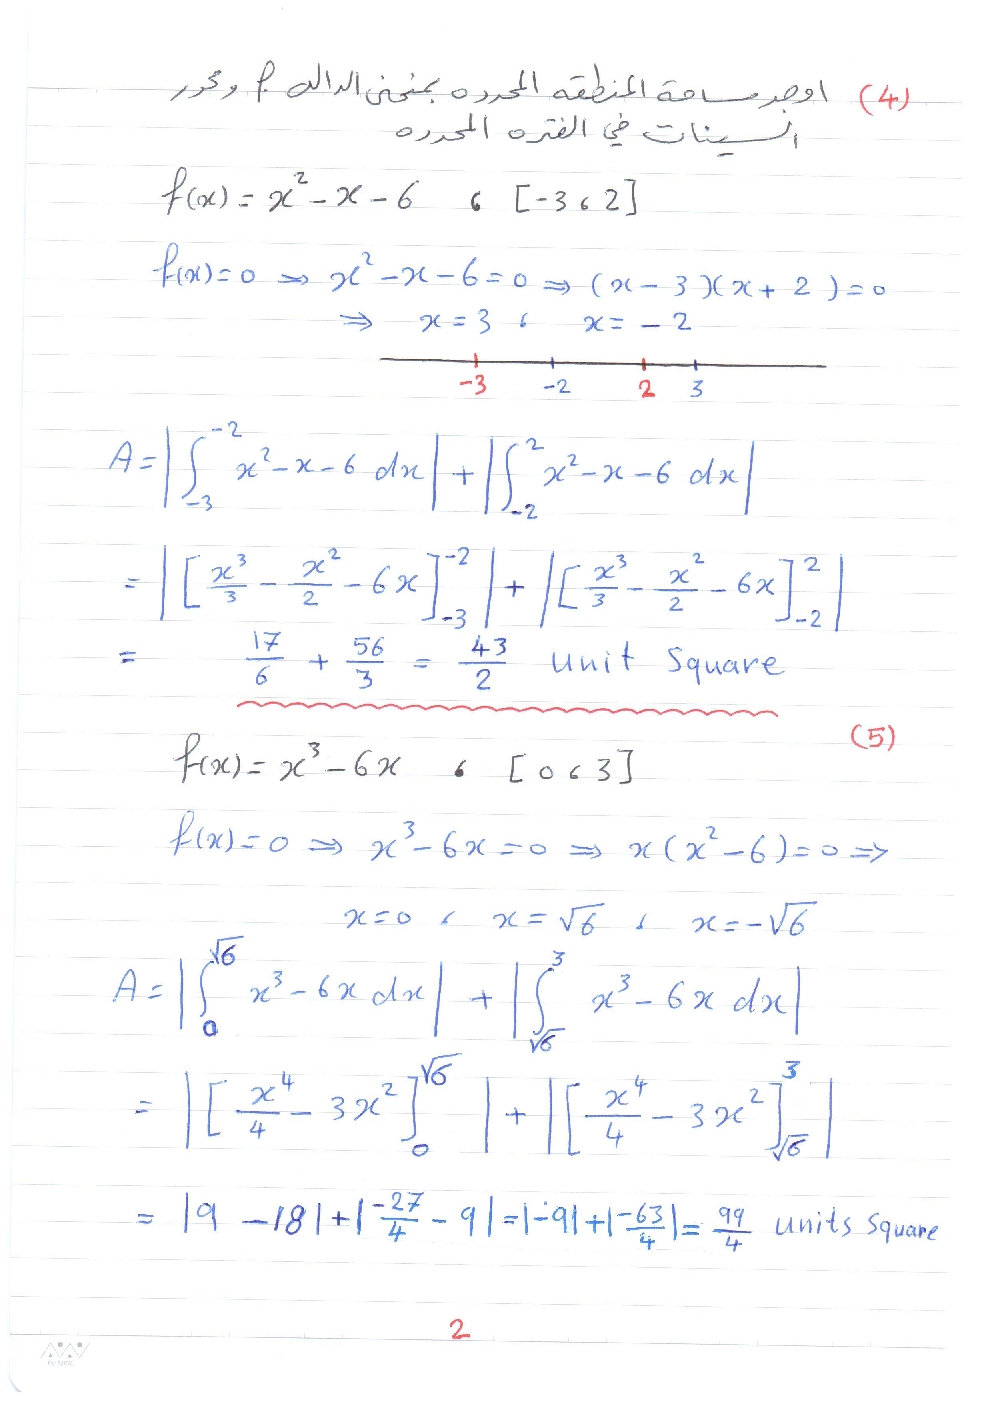 (4) اوجد مساحة المنطقه المحدده بمنحنى الداله f ومحور
السينات في الفتره المحدده
f(x) = x² - x - 6 ، [-3 ، 2]
f(x) = 0 ⇒ x² - x - 6 = 0 ⇒ (x - 3)(x + 2) = 0
⇒ x = 3 ، x = - 2
-3 -2 2 3
A = |∫_{-3}^{-2} x² - x - 6 dx| + |∫_{-2}^{2} x² - x - 6 dx|
= |[x³/3 - x²/2 - 6x]_{-3}^{-2}| + |[x³/3 - x²/2 - 6x]_{-2}^{2}|
= 17/6 + 56/3 = 43/2 unit Square
(5)
f(x) = x³ - 6x ، [0 ، 3]
f(x) = 0 ⇒ x³ - 6x = 0 ⇒ x(x² - 6) = 0 ⇒
x = 0 ، x = √6 ، x = -√6
A = |∫_{0}^{√6} x³ - 6x dx| + |∫_{√6}^{3} x³ - 6x dx|
= |[x⁴/4 - 3x²]_{0}^{√6}| + |[x⁴/4 - 3x²]_{√6}^{3}|
= |9 - 18| + |-27/4 - 9| = |-9| + |-63/4| = 99/4 units Square
2